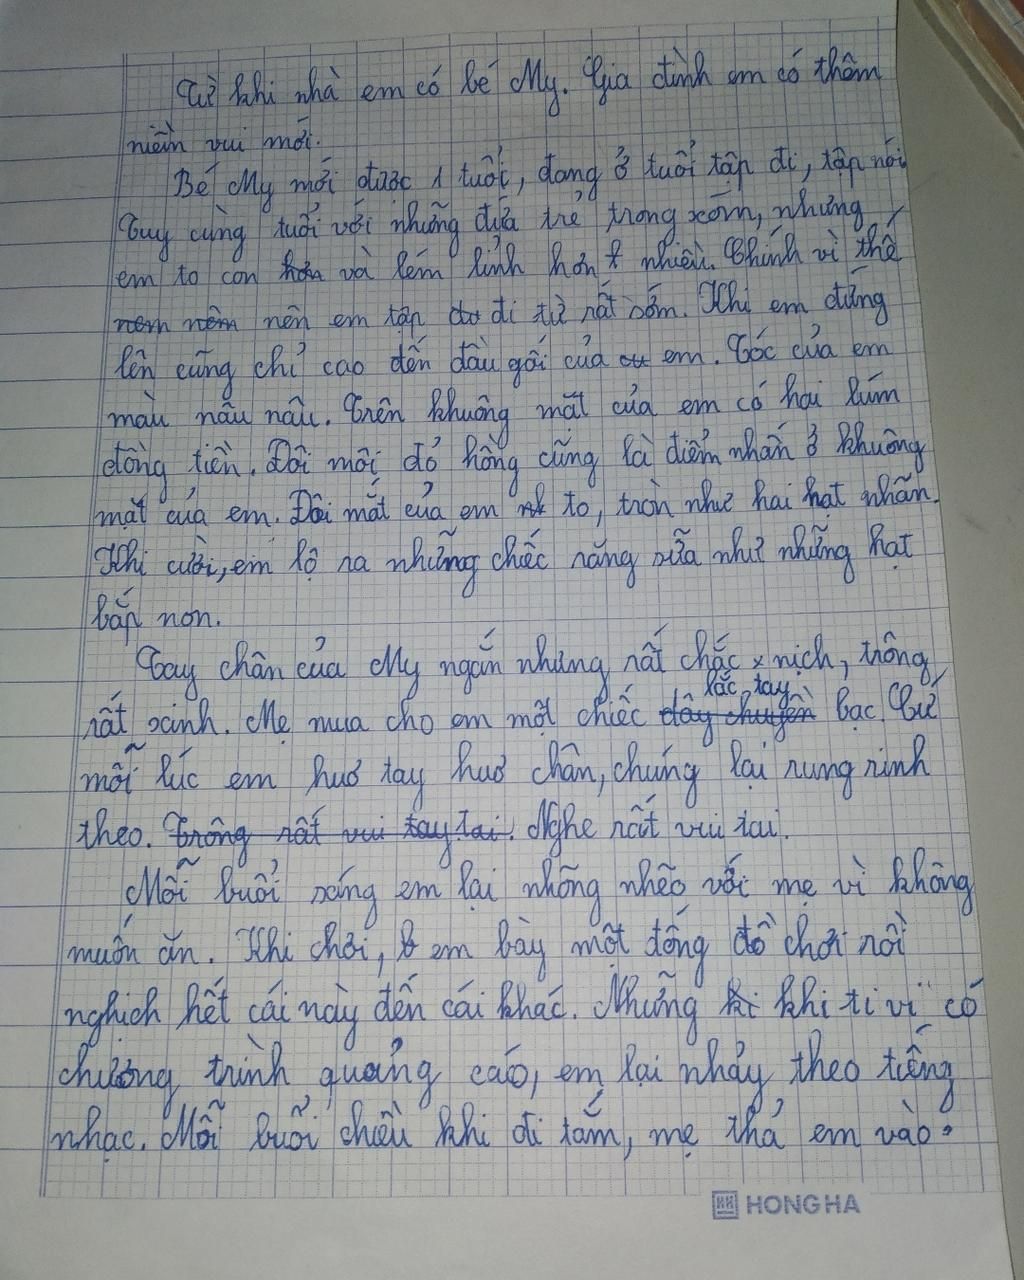 Từ khi nhà em có bé My. Gia đình em có thêm
niềm vui mới.
Bé My mới được 1 tuổi, đang ở tuổi tập đi, tập nói
Tuy cùng tuổi với những đứa trẻ trong xóm, nhưng
em to con hơn và lém lỉnh hơn nhiều. Chính vì thế
nem nêm nên em tập đi từ rất sớm. Khi em đứng
lên cũng chỉ cao đến đầu gối của em. Tóc của em
màu nâu nâu. Trên khuông mặt của em có hai lúm
đồng tiền. Đôi môi đỏ hồng cũng là điểm nhấn ở khuông
mặt của em. Đôi mắt của em to, tròn như hai hạt nhãn.
Khi cười, em lộ ra những chiếc răng sữa như những hạt
bắp non.
Tay chân của My ngắn nhưng rất chắc nịch, trông
lắc tay
rất xinh. Mẹ mua cho em một chiếc dây chuyền bạc. Cứ
mỗi lúc em huơ tay huơ chân, chúng lại rung rinh
theo. Trông rất vui tay tai. Nghe rất vui tai.
Mỗi buổi sáng em lại nhõng nhẽo với mẹ vì không
muốn ăn. Khi chơi, em bày một đống đồ chơi rồi
nghịch hết cái này đến cái khác. Những khi ti vi có
chương trình quảng cáo, em lại nhảy theo tiếng
nhạc. Mỗi buổi chiều khi đi tắm, mẹ thả em vào
HONG HA